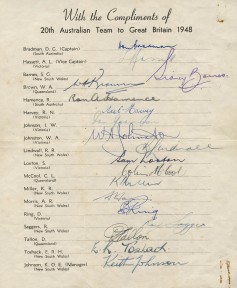 With the Compliments of
20th Australian Team to Great Britain 1948
Bradman, D. G. (Captain)
(South Australia)
Hassett, A. L. (Vice Captain)
(Victoria)
Barnes, S. G.
(New South Wales)
Sidney Barnes
Brown, W. A.
(Queensland)
W A Brown
Hamence, R.
(South Australia)
Ron A Hamence
Harvey, R. N.
(Victoria)
Neil Harvey
Johnson, I. W.
(Victoria)
Johnston, W. A.
(Victoria)
W A Johnston
Lindwall, R. R.
(New South Wales)
Loxton, S.
(Victoria)
Sam Loxton
McCool, C. L.
(Queensland)
Colin McCool
Miller, K. R.
(New South Wales)
Morris, A. R.
(New South Wales)
Ring, D.
(Victoria)
D Ring
Saggers, R.
(New South Wales)
Tallon, D.
(Queensland)
D Tallon
Toshack, E. R. H.
(New South Wales)
E. R. Toshack
Johnson, K. O. E. (Manager)
(New South Wales)
Keith Johnson